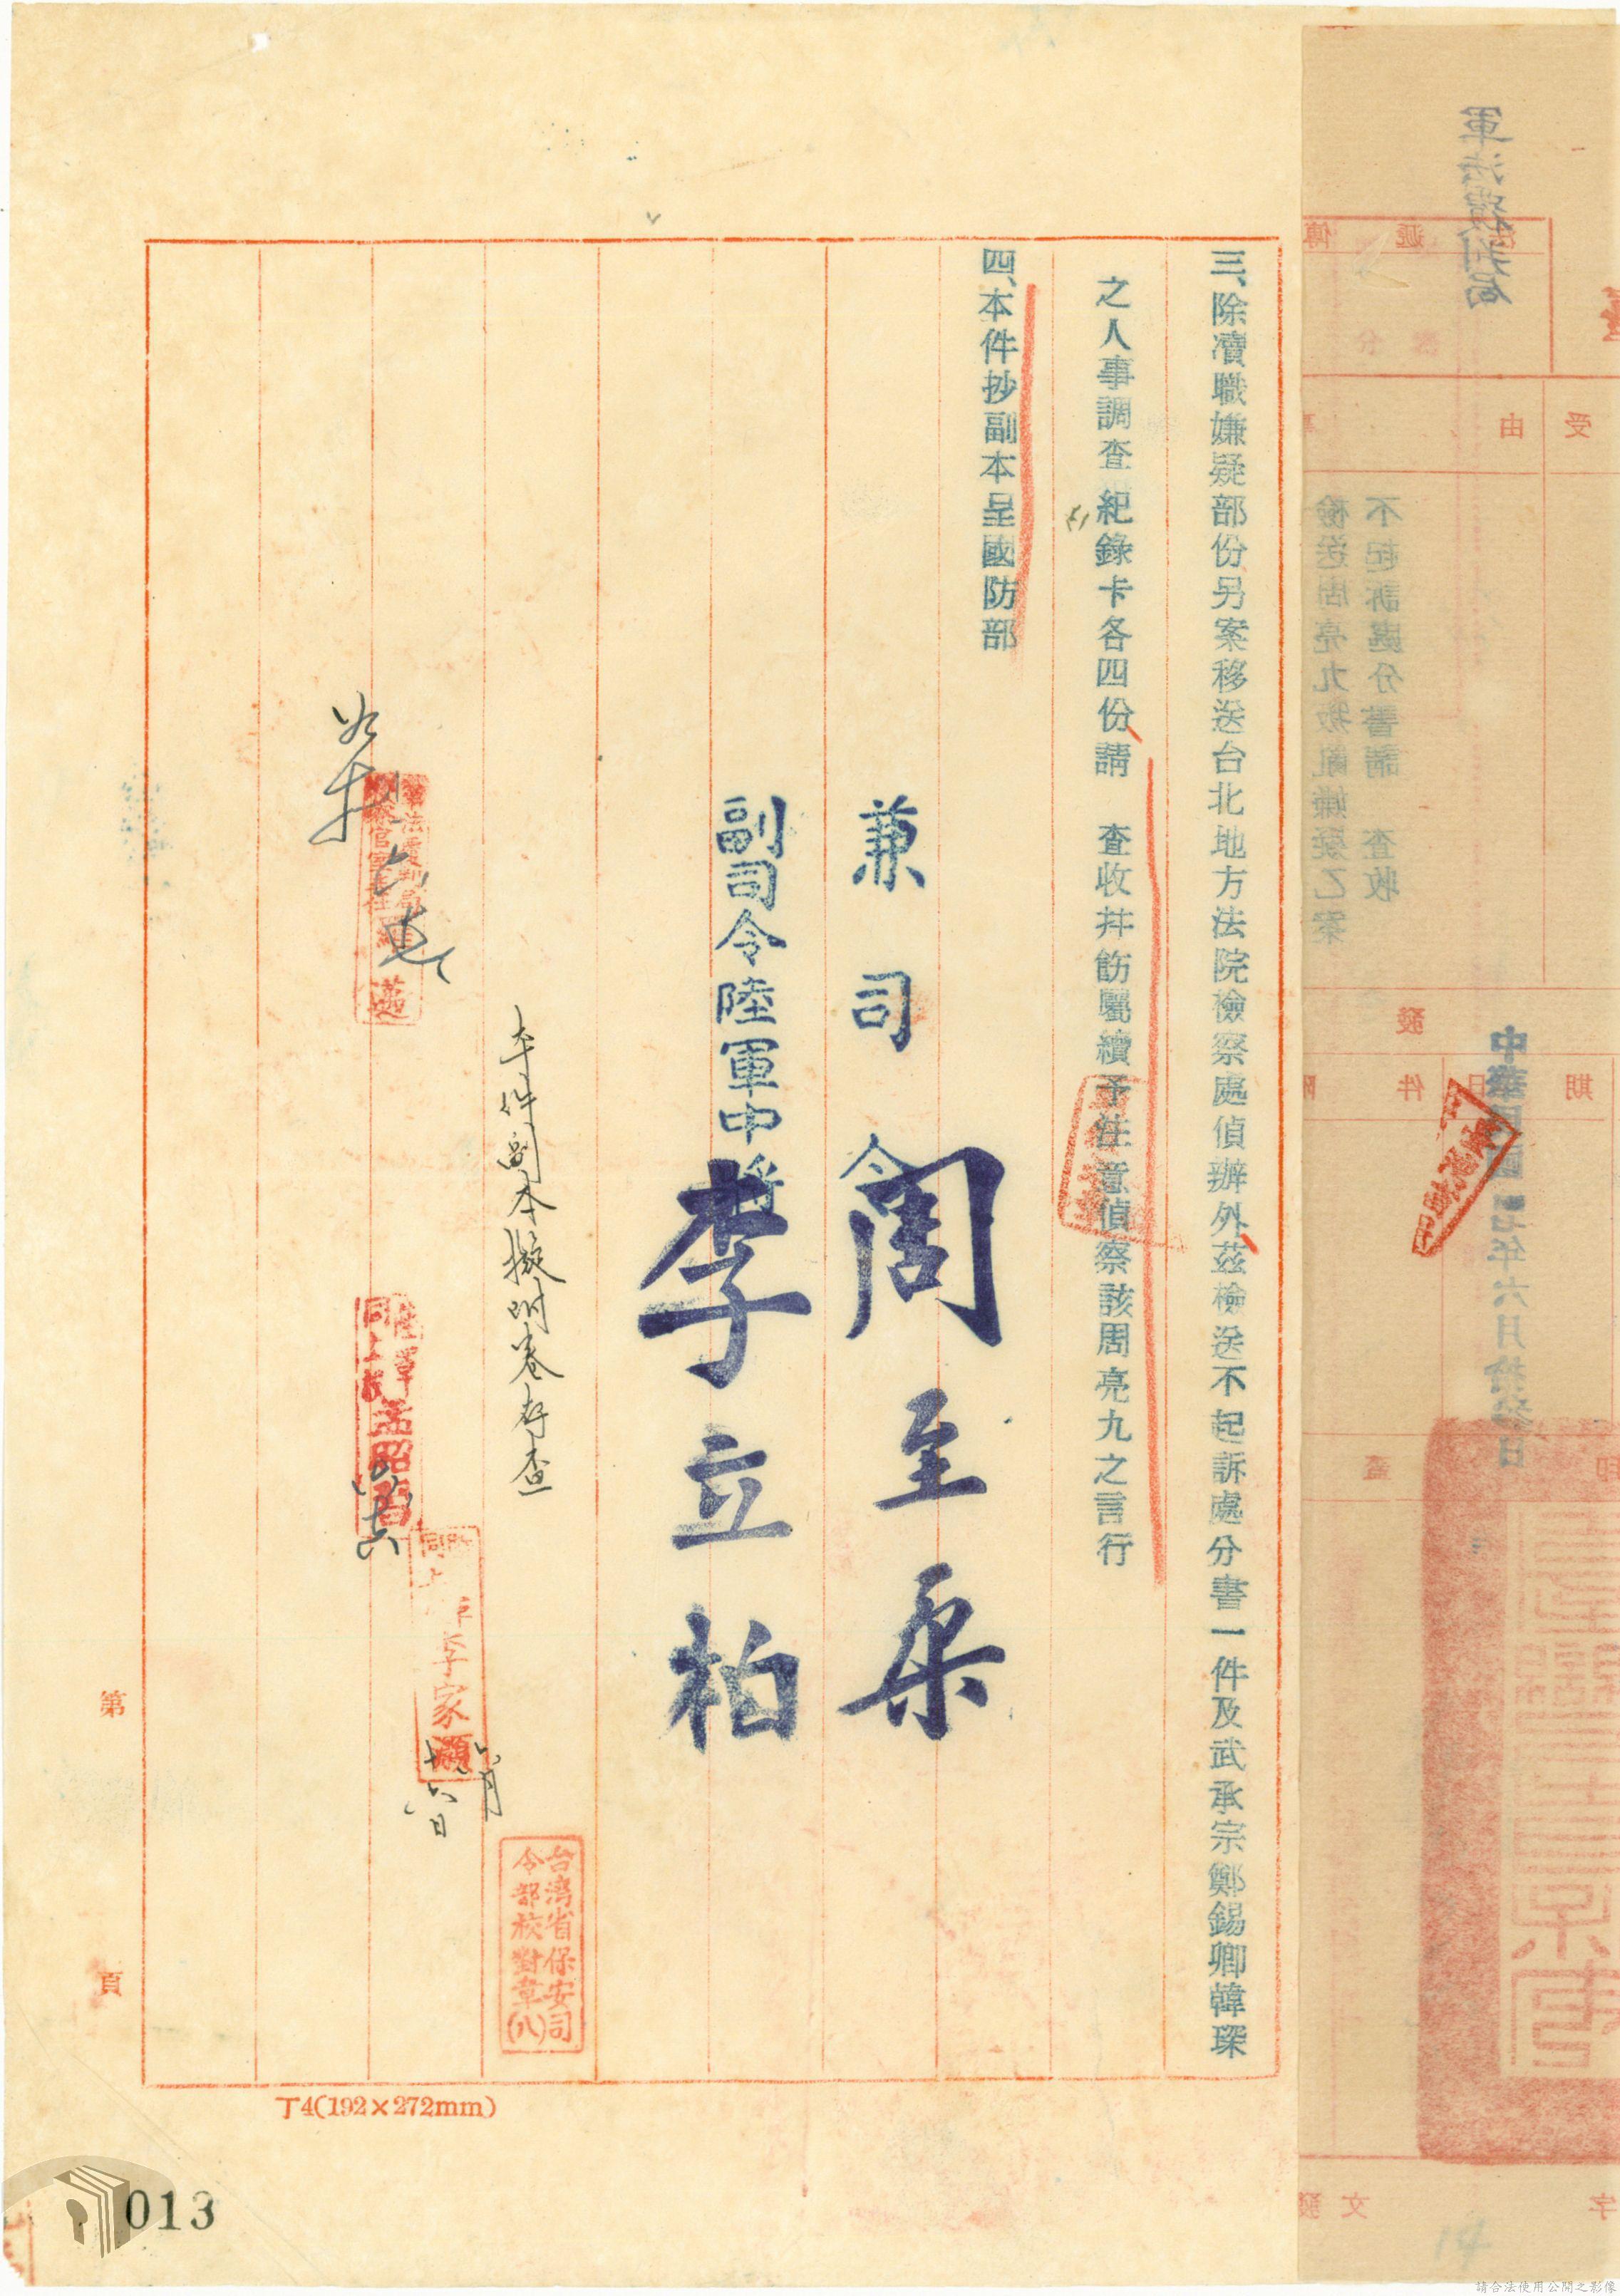 三、除瀆職嫌疑部份另案移送台北地方法院檢察處偵辦外茲檢送不起訴處分書一件及武承宗鄭錫卿韓琛
之人事調查紀錄卡各四份請　查收并飭屬續予注意偵察該周亮九之言行
四、本件抄副本呈國防部
兼司令周至柔
副司令陸軍中將李立柏
本件副本擬附卷存查
李家灝
六月
十六日
台灣省保安司
令部校對章(八)
第
頁
丁4(192×272mm)
013
軍法覆判局
受
由
檢送周亮九叛亂嫌疑乙案
不起訴處分書請　查收
中華民國四七年六月拾參日
發
件
日
期
蓋
印
發文
字
14
請合法使用公開之影像